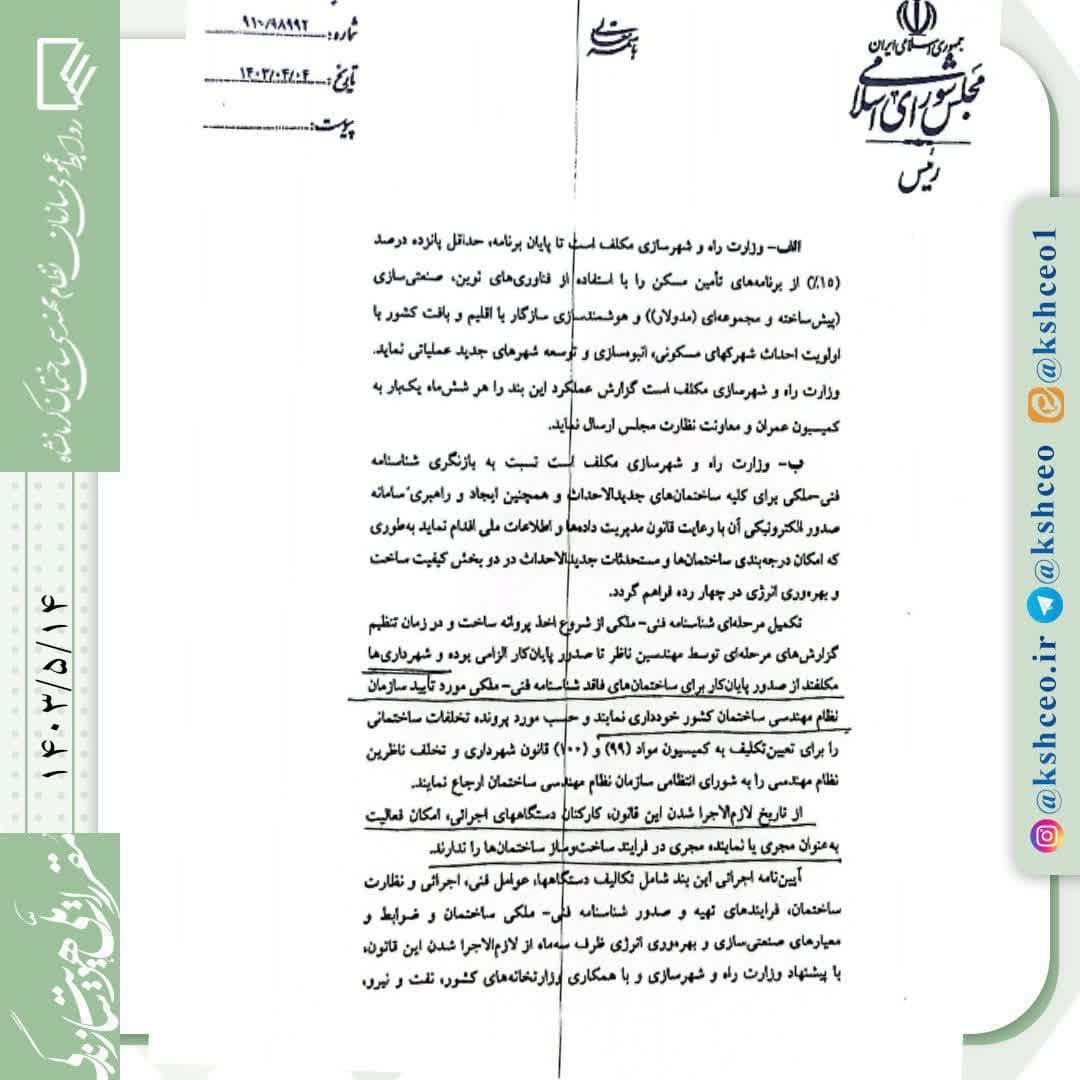 جمهوری اسلامی ایران
مجلس شورای اسلامی
رئیس
باسمه تعالی
شماره: ۹۱۰/۹۸۹۹۲
تاریخ: ۱۴۰۳/۰۴/۰۴
پیوست:
الف- وزارت راه و شهرسازی مکلف است تا پایان برنامه، حداقل پانزده درصد
(۱۵٪) از برنامه‌های تأمین مسکن را با استفاده از فناوری‌های نوین، صنعتی‌سازی
(پیش‌ساخته و مجموعه‌ای (مدولار)) و هوشمندسازی سازگار با اقلیم و بافت کشور با
اولویت احداث شهرکهای مسکونی، انبوه‌سازی و توسعه شهرهای جدید عملیاتی نماید.
وزارت راه و شهرسازی مکلف است گزارش عملکرد این بند را هر شش‌ماه یک‌بار به
کمیسیون عمران و معاونت نظارت مجلس ارسال نماید.
ب- وزارت راه و شهرسازی مکلف است نسبت به بازنگری شناسنامه
فنی-ملکی برای کلیه ساختمان‌های جدیدالاحداث و همچنین ایجاد و راهبری سامانه
صدور الکترونیکی آن با رعایت قانون مدیریت داده‌ها و اطلاعات ملی اقدام نماید به‌طوری
که امکان درجه‌بندی ساختمان‌ها و مستحدثات جدیدالاحداث در دو بخش کیفیت ساخت
و بهره‌وری انرژی در چهار رده فراهم گردد.
تکمیل مرحله‌ای شناسنامه فنی- ملکی از شروع اخذ پروانه ساخت و در زمان تنظیم
گزارش‌های مرحله‌ای توسط مهندسین ناظر تا صدور پایان‌کار الزامی بوده و شهرداری‌ها
مکلفند از صدور پایان‌کار برای ساختمان‌های فاقد شناسنامه فنی- ملکی مورد تأیید سازمان
نظام مهندسی ساختمان کشور خودداری نمایند و حسب مورد پرونده تخلفات ساختمانی
را برای تعیین‌تکلیف به کمیسیون مواد (۹۹) و (۱۰۰) قانون شهرداری و تخلف ناظرین
نظام مهندسی را به شورای انتظامی سازمان نظام مهندسی ساختمان ارجاع نمایند.
از تاریخ لازم‌الاجرا شدن این قانون، کارکنان دستگاههای اجرائی، امکان فعالیت
به‌عنوان مجری یا نماینده مجری در فرایند ساخت‌وساز ساختمان‌ها را ندارند.
آیین‌نامه اجرائی این بند شامل تکالیف دستگاهها، عوامل فنی، اجرائی و نظارت
ساختمان، فرایندهای تهیه و صدور شناسنامه فنی- ملکی ساختمان و ضوابط و
معیارهای صنعتی‌سازی و بهره‌وری انرژی ظرف سه‌ماه از لازم‌الاجرا شدن این قانون،
با پیشنهاد وزارت راه و شهرسازی و با همکاری وزارتخانه‌های کشور، نفت و نیرو،
@kshceo.ir @kshceo @kshceo1
روابط عمومی سازمان نظام مهندسی ساختمان کرمانشاه
۱۴۰۳/۵/۱۴
مقررات ملی هویت سازندگی